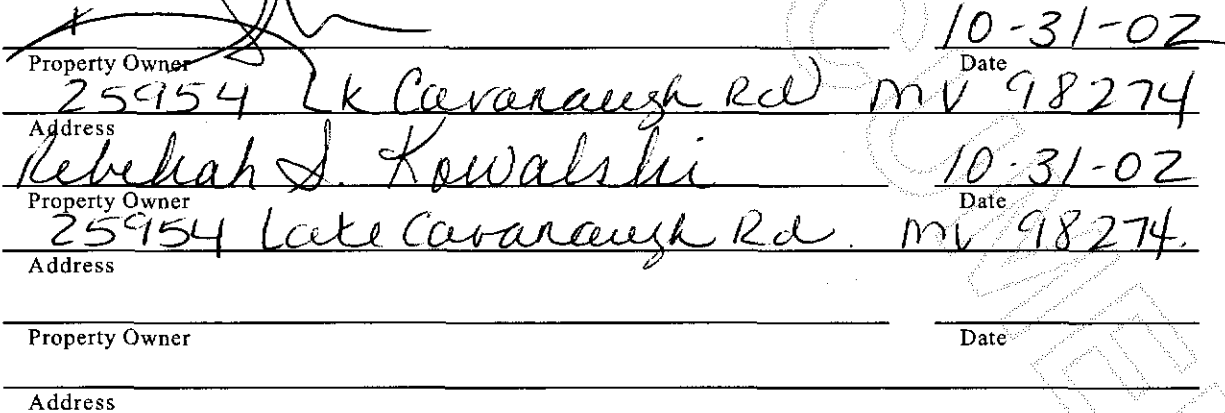 10-31-02
Property Owner Date
25954 Lk Cavanaugh Rd MV 98274
Address
Rebekah S. Kowalski 10-31-02
Property Owner Date
25954 Lake Cavanaugh Rd. MV 98274.
Address
Property Owner Date
Address